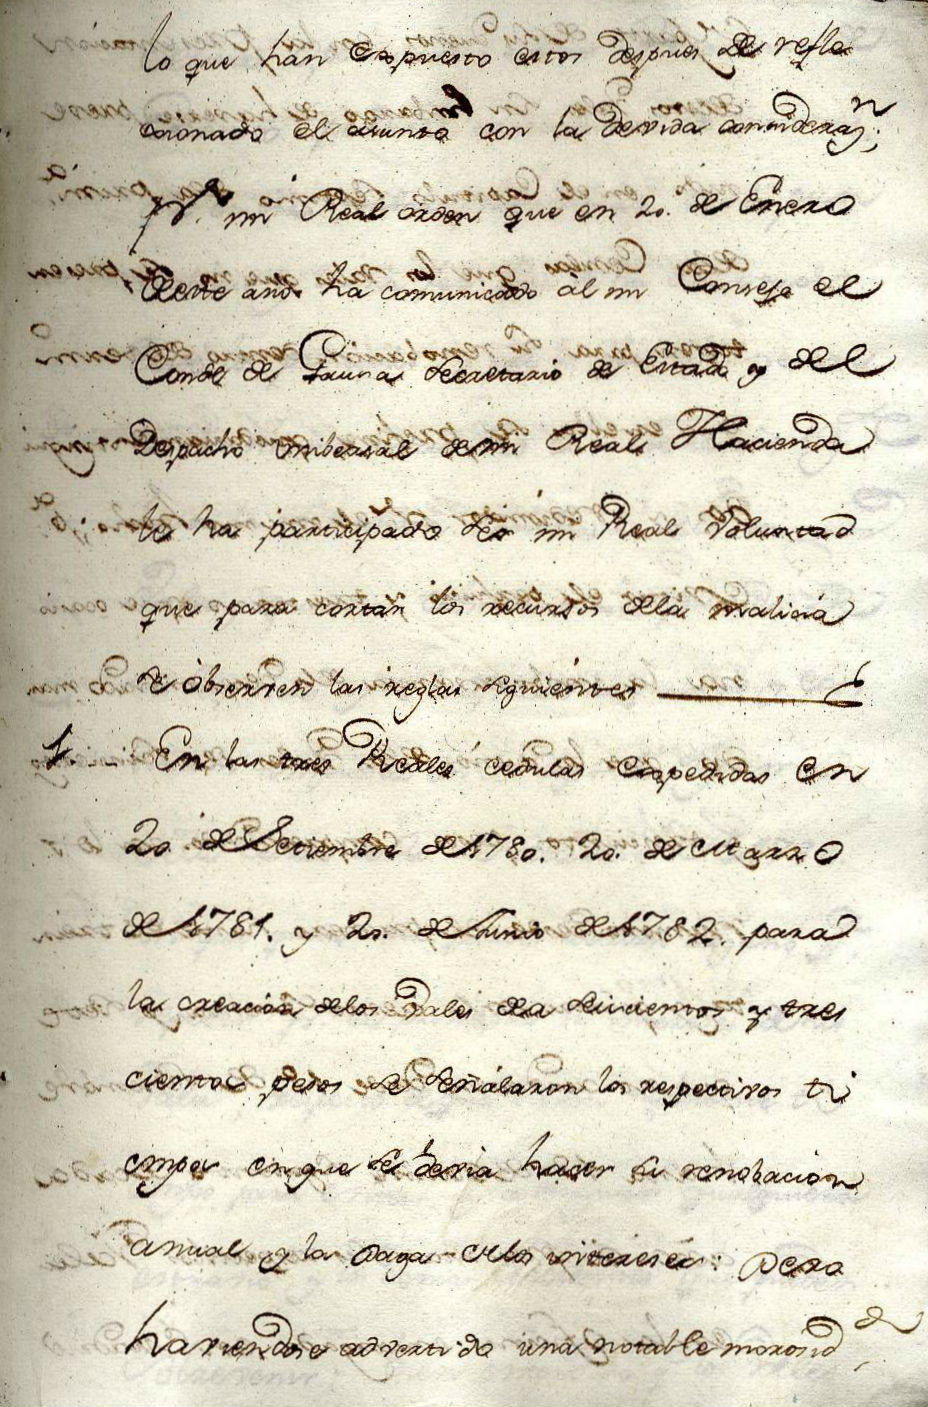 lo que han expuesto estos despues de refle
xionado el asunto con la devida consideraz.n;
pr. mi Real orden que en 20. de Enero
deeste año ha comunicado al mi Consejo el
Conde de Gausa Secretario de Estado y del
Despacho Unibersal demi Real Hacienda
le ha participado ser mi Real Voluntad
que para cortar los recursos dela malicia
se observen las reglas siguientes
1. En las tres Reales cedulas expedidas en
20. de Setiembre de 1780. 20. de Marzo
de 1781. y 20. de Junio de 1782. para
la creacion delos Vales de a seiscientos y tres
cientos pesos se señalaron los respectivos ti
empos en que se devia hacer su renobacion
anual y la paga delos intereses: pero
haviendose advertido una notable morosid.d